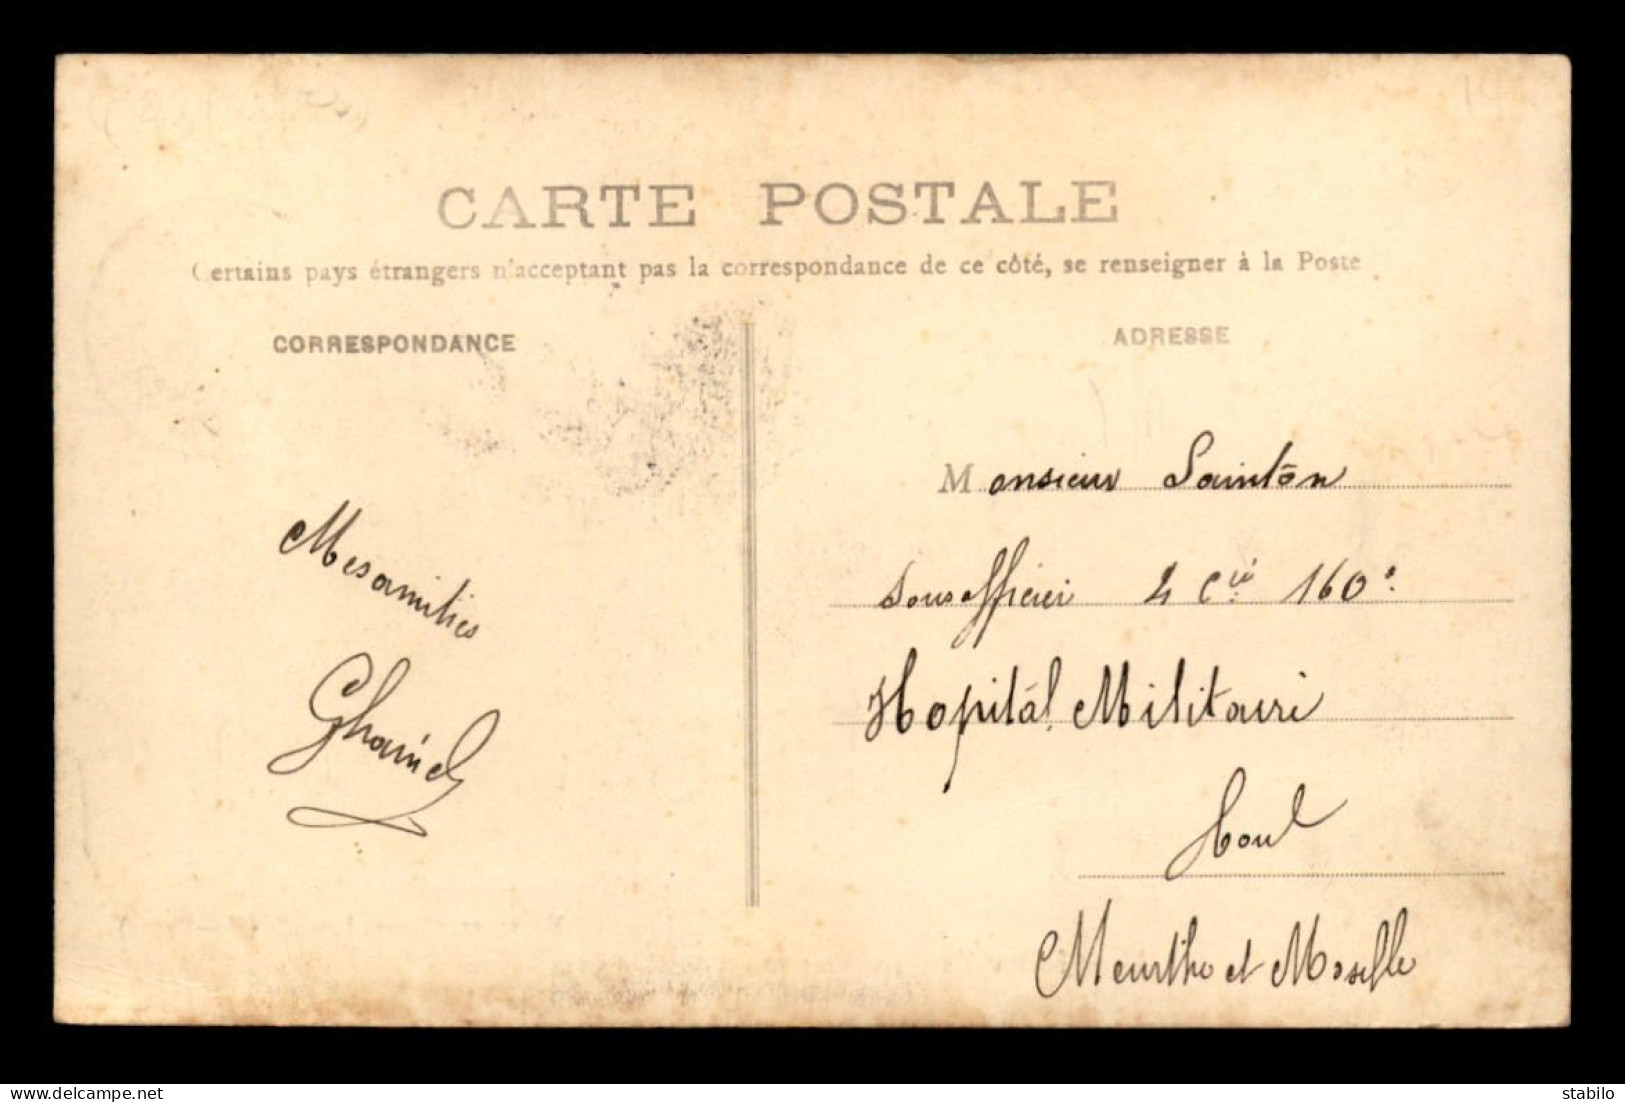 CARTE POSTALE
Certains pays étrangers n'acceptant pas la correspondance de ce côté, se renseigner à la Poste
CORRESPONDANCE
ADRESSE
Mes amitiés
Monsieur Sainton
Sous officier 4 Cie 160e
Hopital Militaire
Toul
Meurthe et Moselle
delcampe.net
stabilo